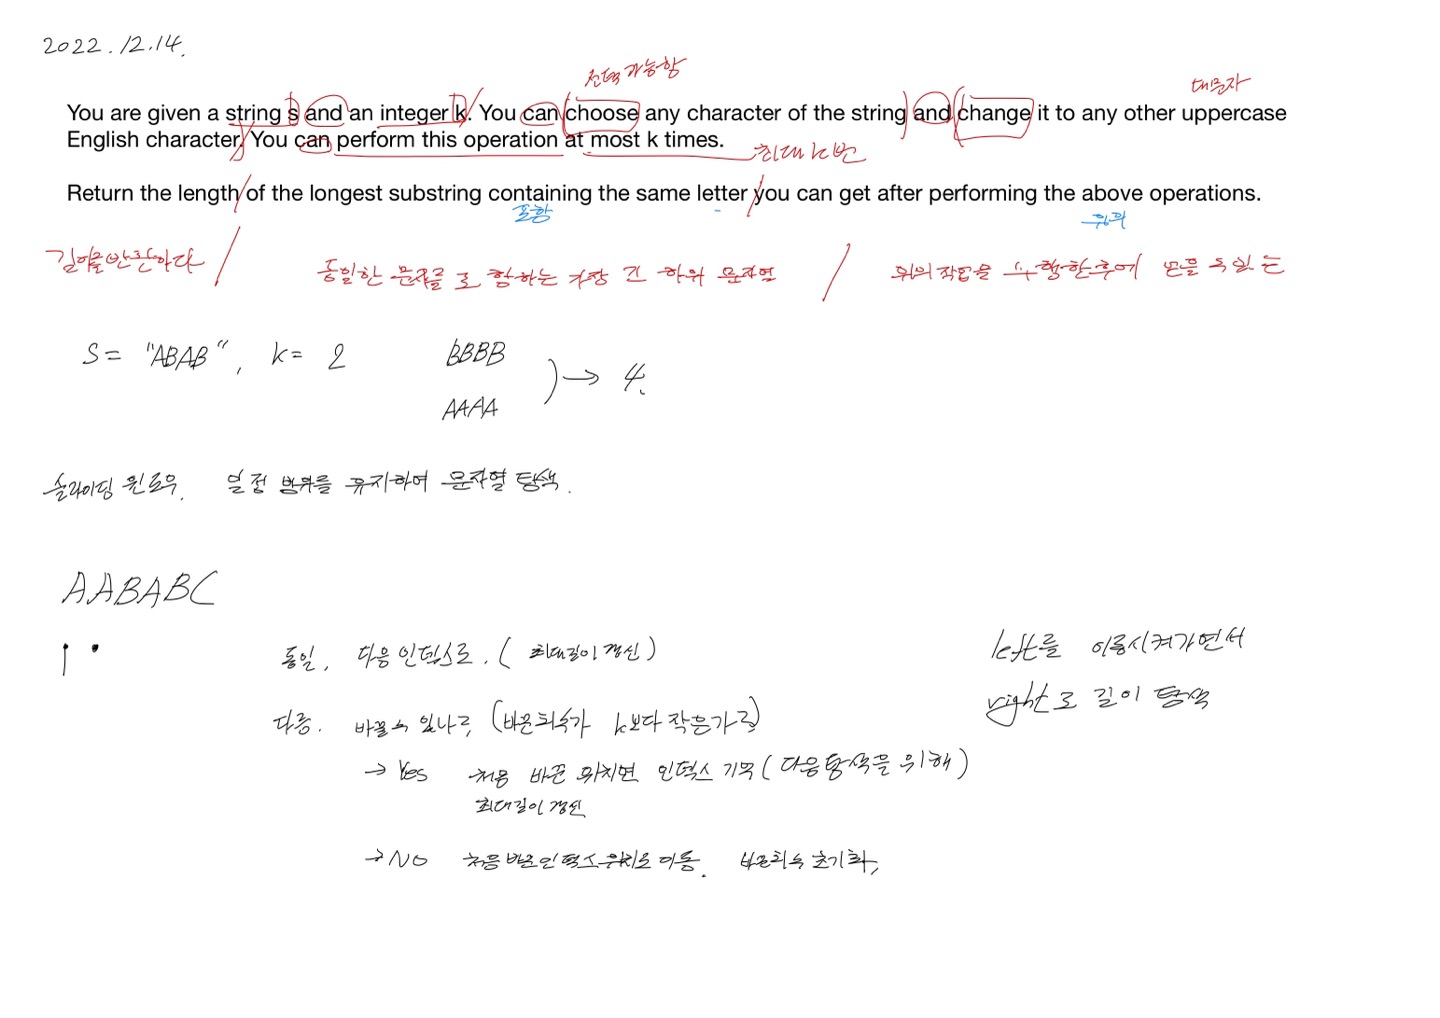 2022.12.14.
선택가능함
대문자
You are given a string s and an integer k. You can choose any character of the string and change it to any other uppercase
English character. You can perform this operation at most k times.
최대 k번
Return the length of the longest substring containing the same letter you can get after performing the above operations.
포함
위의
길이를 반환하다
동일한 문자를 포함하는 가장 긴 하위 문자열
위의 작업을 수행한후에 얻을 수 있는
S = "ABAB", k = 2
BBBB
→ 4.
AAAA
슬라이딩 윈도우. 일정 범위를 유지하여 문자열 탐색.
AABABC
동일. 다음 인덱스로. (최대길이 갱신)
left를 이동시켜가면서
right로 길이 탐색
다름. 바꿀 수 있나? (바꾼 횟수가 k보다 작은가?)
→ Yes 처음 바꾼 위치면 인덱스 기억 (다음탐색을 위해)
최대길이 갱신
→ NO 처음 바꾼 인덱스 위치로 이동. 바꾼횟수 초기화,